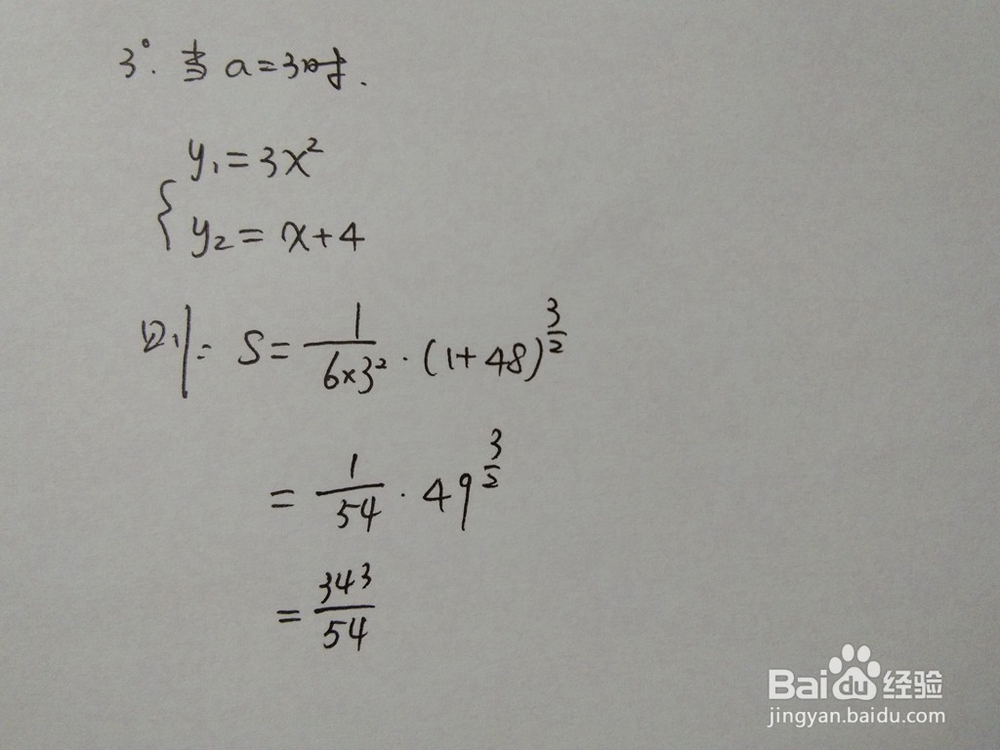 3°. 当 a=3时.
y₁=3x²
y₂= x+4
则: S= 1/(6×3²) · (1+48)^(3/2)
= 1/54 · 49^(3/2)
= 343/54
Baidu 经验
jingyan.baidu.com